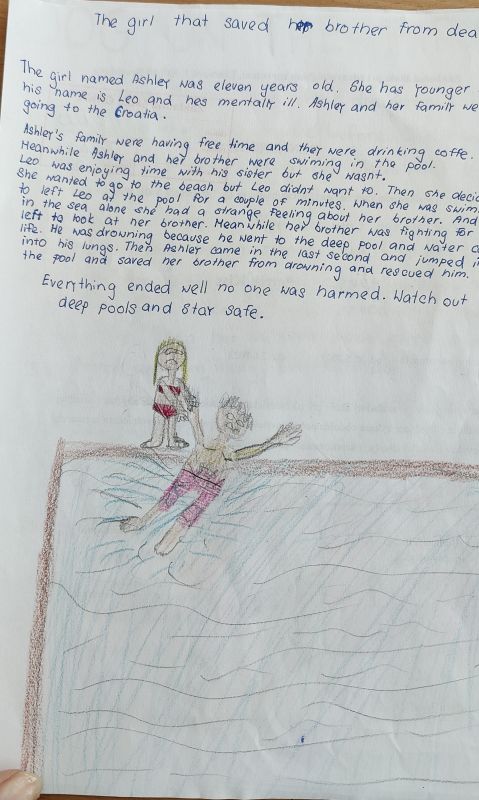 The girl that saved her brother from dea
The girl named Ashley was eleven years old. She has younger
his name is Leo and hes mentally ill. Ashley and her family we
going to the Croatia.
Ashley's family were having free time and they were drinking coffe.
Meanwhile Ashley and her brother were swiming in the pool.
Leo was enjoying time with his sister but she wasnt.
She wanted to go to the beach but Leo didnt want to. Then she decid
to left Leo at the pool for a couple of minutes. When she was swim
in the sea alone she had a strange feeling about her brother. And
left to look at her brother. Meanwhile her brother was fighting for
life. He was drowning because he went to the deep pool and water c
into his lungs. Then Ashley came in the last second and jumped i
the pool and saved her brother from drowning and rescued him.
Everything ended well no one was harmed. Watch out
deep pools and stay safe.